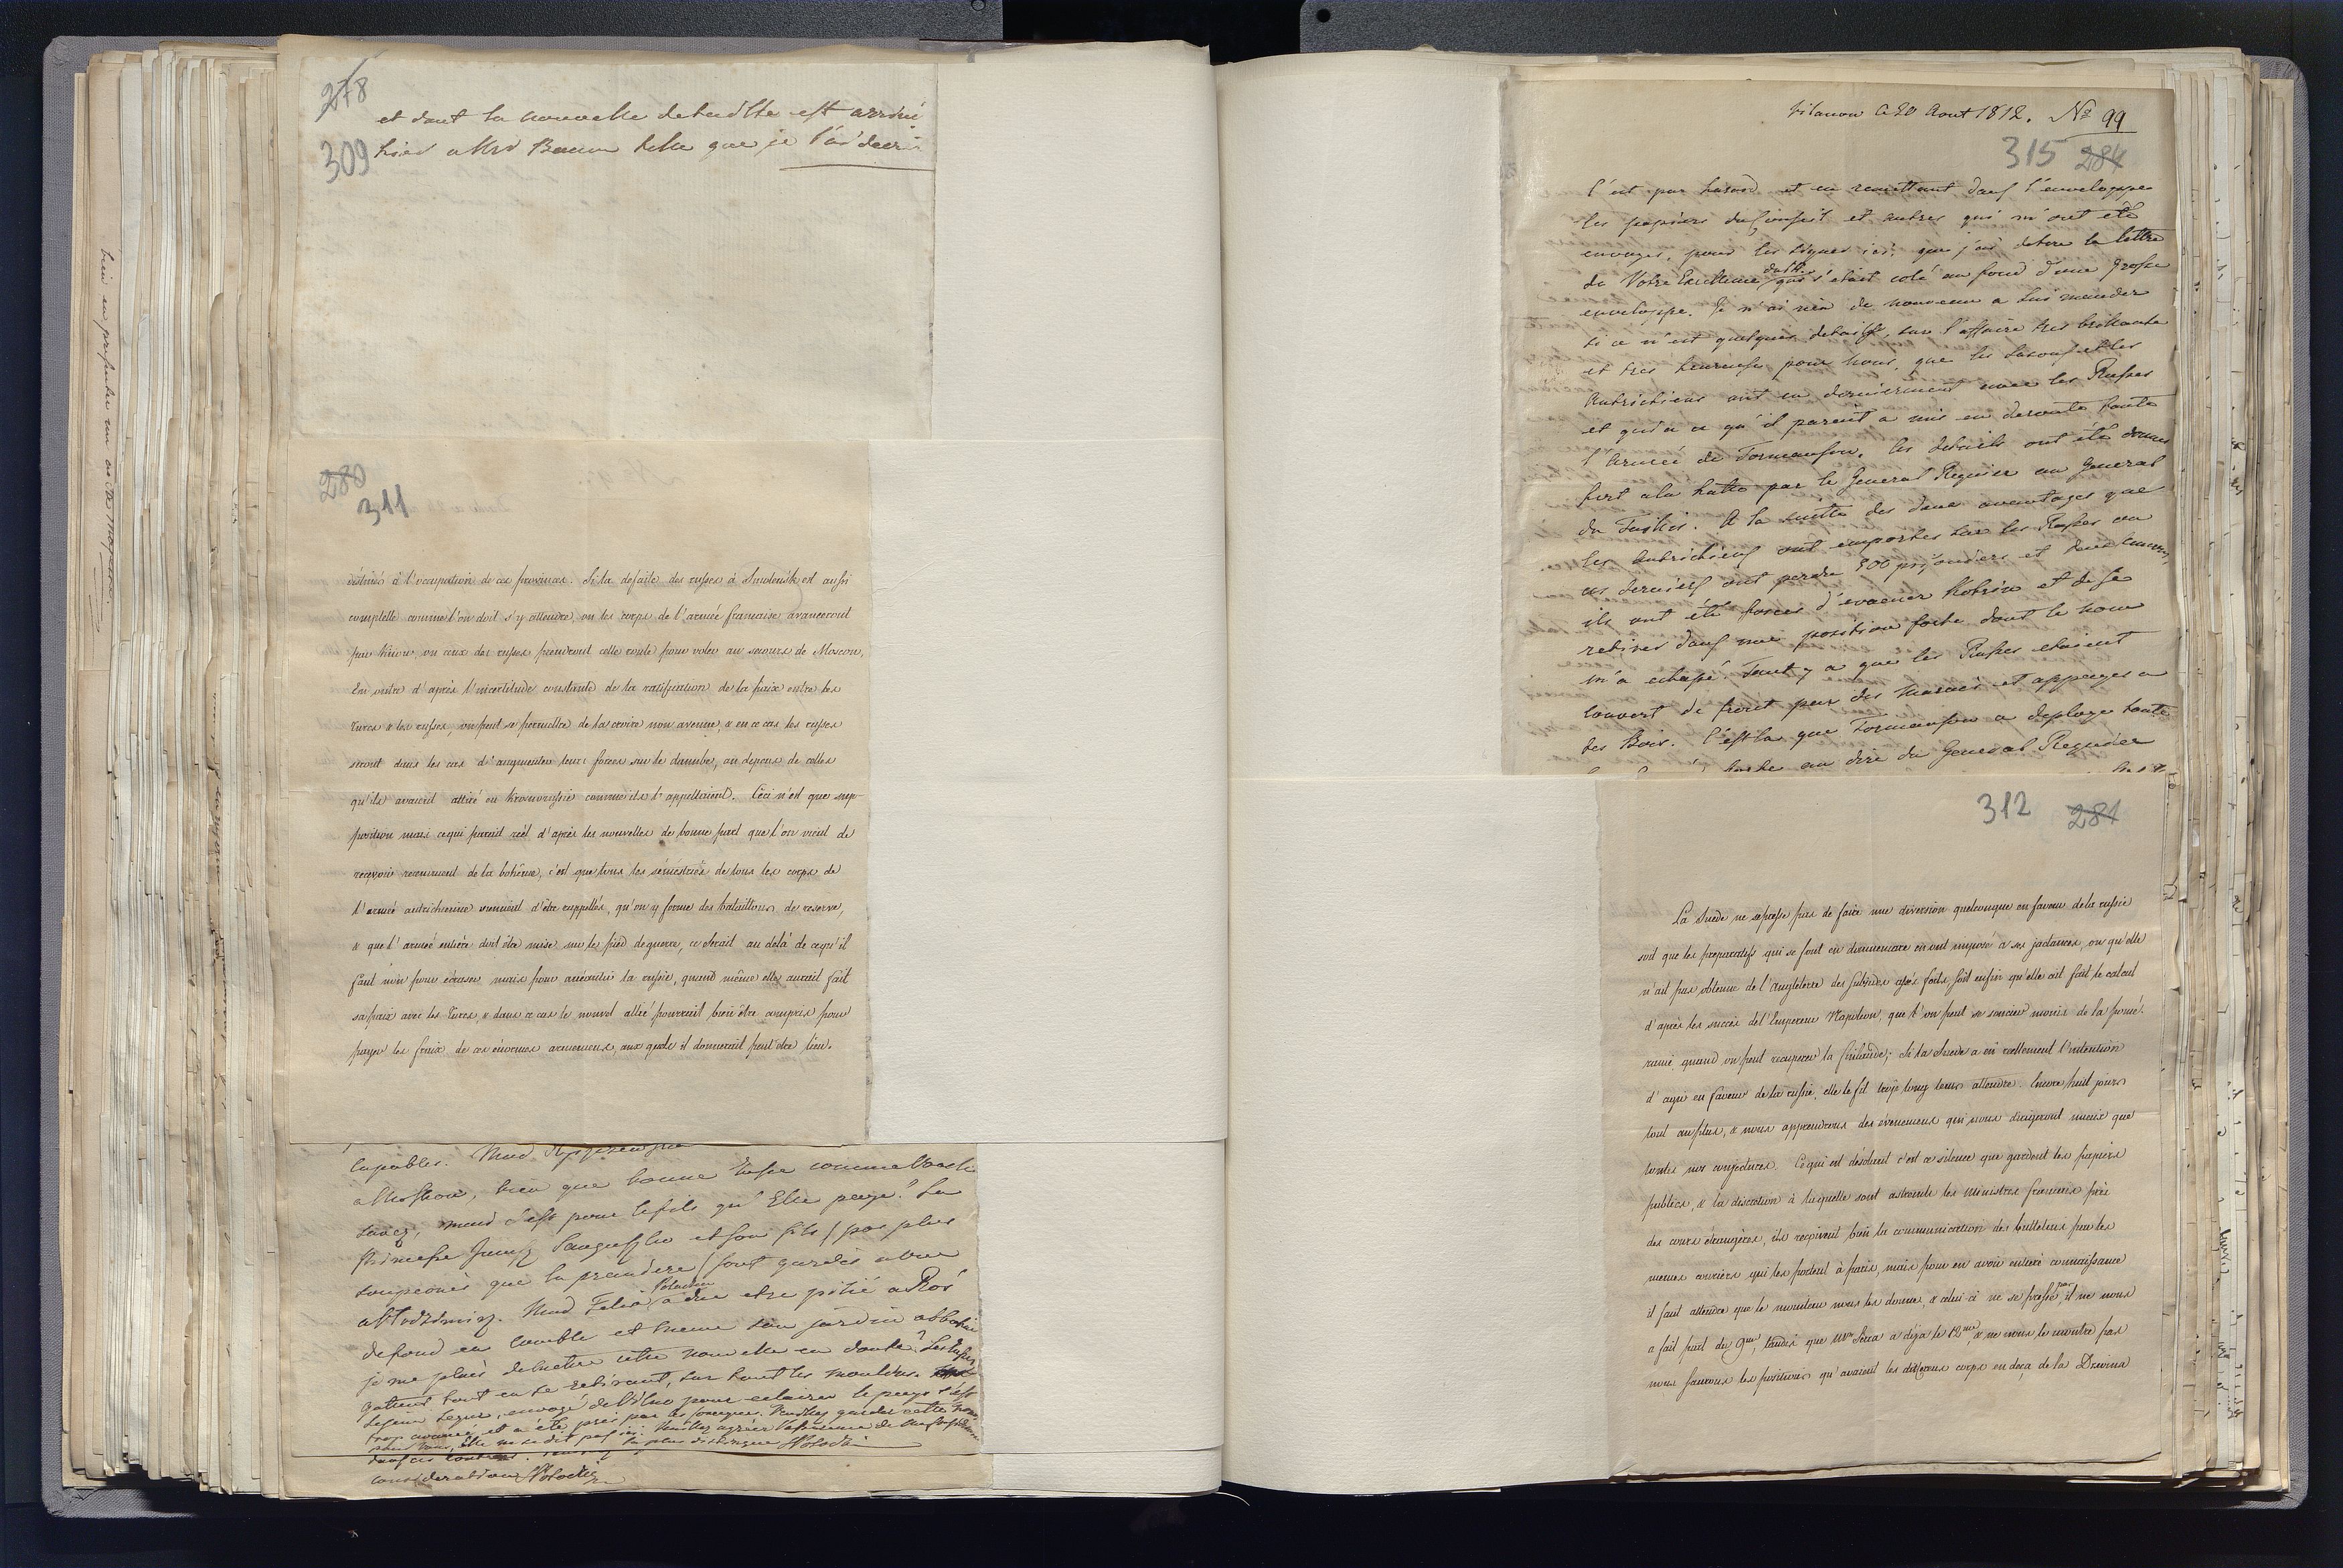 278
309
et dont la nouvelle detaillée est arrivé
hier a Mrd Baum telle que je l'ai decrit
280
311
destinés à l'occupation de ces provinces. Si la defaite des russes à Smolensk est aussi
complette comme l'on doit s'y attendre, ou les corps de l'armée française avanceront
par Kiow, ou ceux des russes prendront cette route pour voler au secours de Moscou,
En outre d'après l'incertitude constante de la ratification de la paix entre les
turcs & les russes, on peut se permettre de la croire non avenue, & en ce cas les russes
seront dans les cas d'augmenter leurs forces sur le danube, au depens de celles
qu'ils avaient attiré en krasnorussie comme ils l'appellaient. Ceci n'est que sup-
position mais ce qui parait réel d'après les nouvelles de bonne part que l'on vient de
recevoir recemment de la bohême, c'est que tous les sémestriés de tous les corps de
l'armée autrichienne viennent d'être rappellés, qu'on y forme des bataillons de reserve,
& que l'armée entière doit être mise sur le pied de guerre, ce serait au delà de ce qu'il
faut non pour écraser mais pour anéantir la russie, quand même elle aurait fait
sa paix avec les turcs, & dans ce cas le nouvel allié pourrait bien être compris pour
payer les fraix de ces énormes armemens, aux quels il donnerait peut être lieu.
capables. Mad
a Moskou, bien que bonne Russe comme Vous le
savez, mais c'est pour le fils qu'Elle paye. La
Princesse Sanguszko et son fils / pas plus
soupçonés que la premiere / sont gardés a vue
a Wlodzimirz. Mad Felix Potocka a due etre pillé a Ros
de fond en comble et meme son jardin abbatu
je me plais de mettre cette nouvelle en doute. Les Russes
gattent tout en se retirant, sur tout les moulins.
Segur, envoyé de Vilno pour eclairer le pays s'est
trop avancé et a été pris par les cosaques. Veuillez garder cette
pour Vous, Elle ne se dit pas ici. Veuillez agréer l'assurance de
la plus distinguée SPotocki
consideration SPotocki
bien en presenter un au Cte Maresca.
Vilanow Ce 20 Aout 1812. No 99
315 284
C'est par hasard et en remettant dans l'enveloppe
les papiers du Conseil et autres qui m'ont été
envoyés, pour les signer ici, que j'ai detere la lettre
de Votre Excellence qui s'etait colé au fond d'une grosse
enveloppe. Je n'ai rien de nouveau a lui mander
si ce n'est quelques details, sur l'affaire tres brillante
et tres heureuse pour nous, que les Saxons et les
Autrichiens ont eu dernierement avec les Russes
et qui a ce qu'il parait a mis en deroute toute
l'Armée de Tormansow. Les details ont été donnés
fort a la hatte par le General Regnier au General
du Taillis. A la suitte des deux avantages que
les Autrichiens ont emportes sur les Russes ou
ces derniers ont perdu 500 prisoniers et deux canons,
ils ont été forcés d'evacuer Kobrin et de se
retirer dans une position forte dont le nom
m'a echapé. Tant y a que les Russes etaient
couvert de front par des marais et appuyes a
des Bois. C'est la que Tormansow a deploye toute
au dire du General Regnier
312 281
La Suède ne se presse pas de faire une diversion quelconque en faveur de la russie
soit que les preparatifs qui se font en dannemarc en ont imposé à ses jactances, ou qu'elle
n'ait pas obtenue de l'angleterre des subsides assés forts, soit enfin qu'elle ait fait le calcul
d'après les succès de l'Empereur Napoleon, que l'on peut se soucier moins de la pomé-
ranie quand on peut recuperer la finlande; Si la Suede a eû reellement l'intention
d'agir en faveur de la russie, elle le fit trop long tems attendre. Encore huit jours
tout au plus, & nous apprendrons des évenemens qui nous dirigeront mieux que
toutes nos conjectures. Ce qui est désolant c'est ce silence que gardent les papiers
publics, & la discretion à laquelle sont astreints les Ministres français près
des cours étrangères, ils reçoivent bien la communication des bulletins par les
memes couriers qui les portent à paris, mais pour en avoir entière connaissance
il faut attendre que le moniteur nous les donne, & celui-ci ne se presse pas, il ne nous
a fait part du 9me, tandis que Mr Serra a déja le 12me & ne nous le montre pas
nous saurons les positions qu'avaient les differens corps en deça de la Dzwina